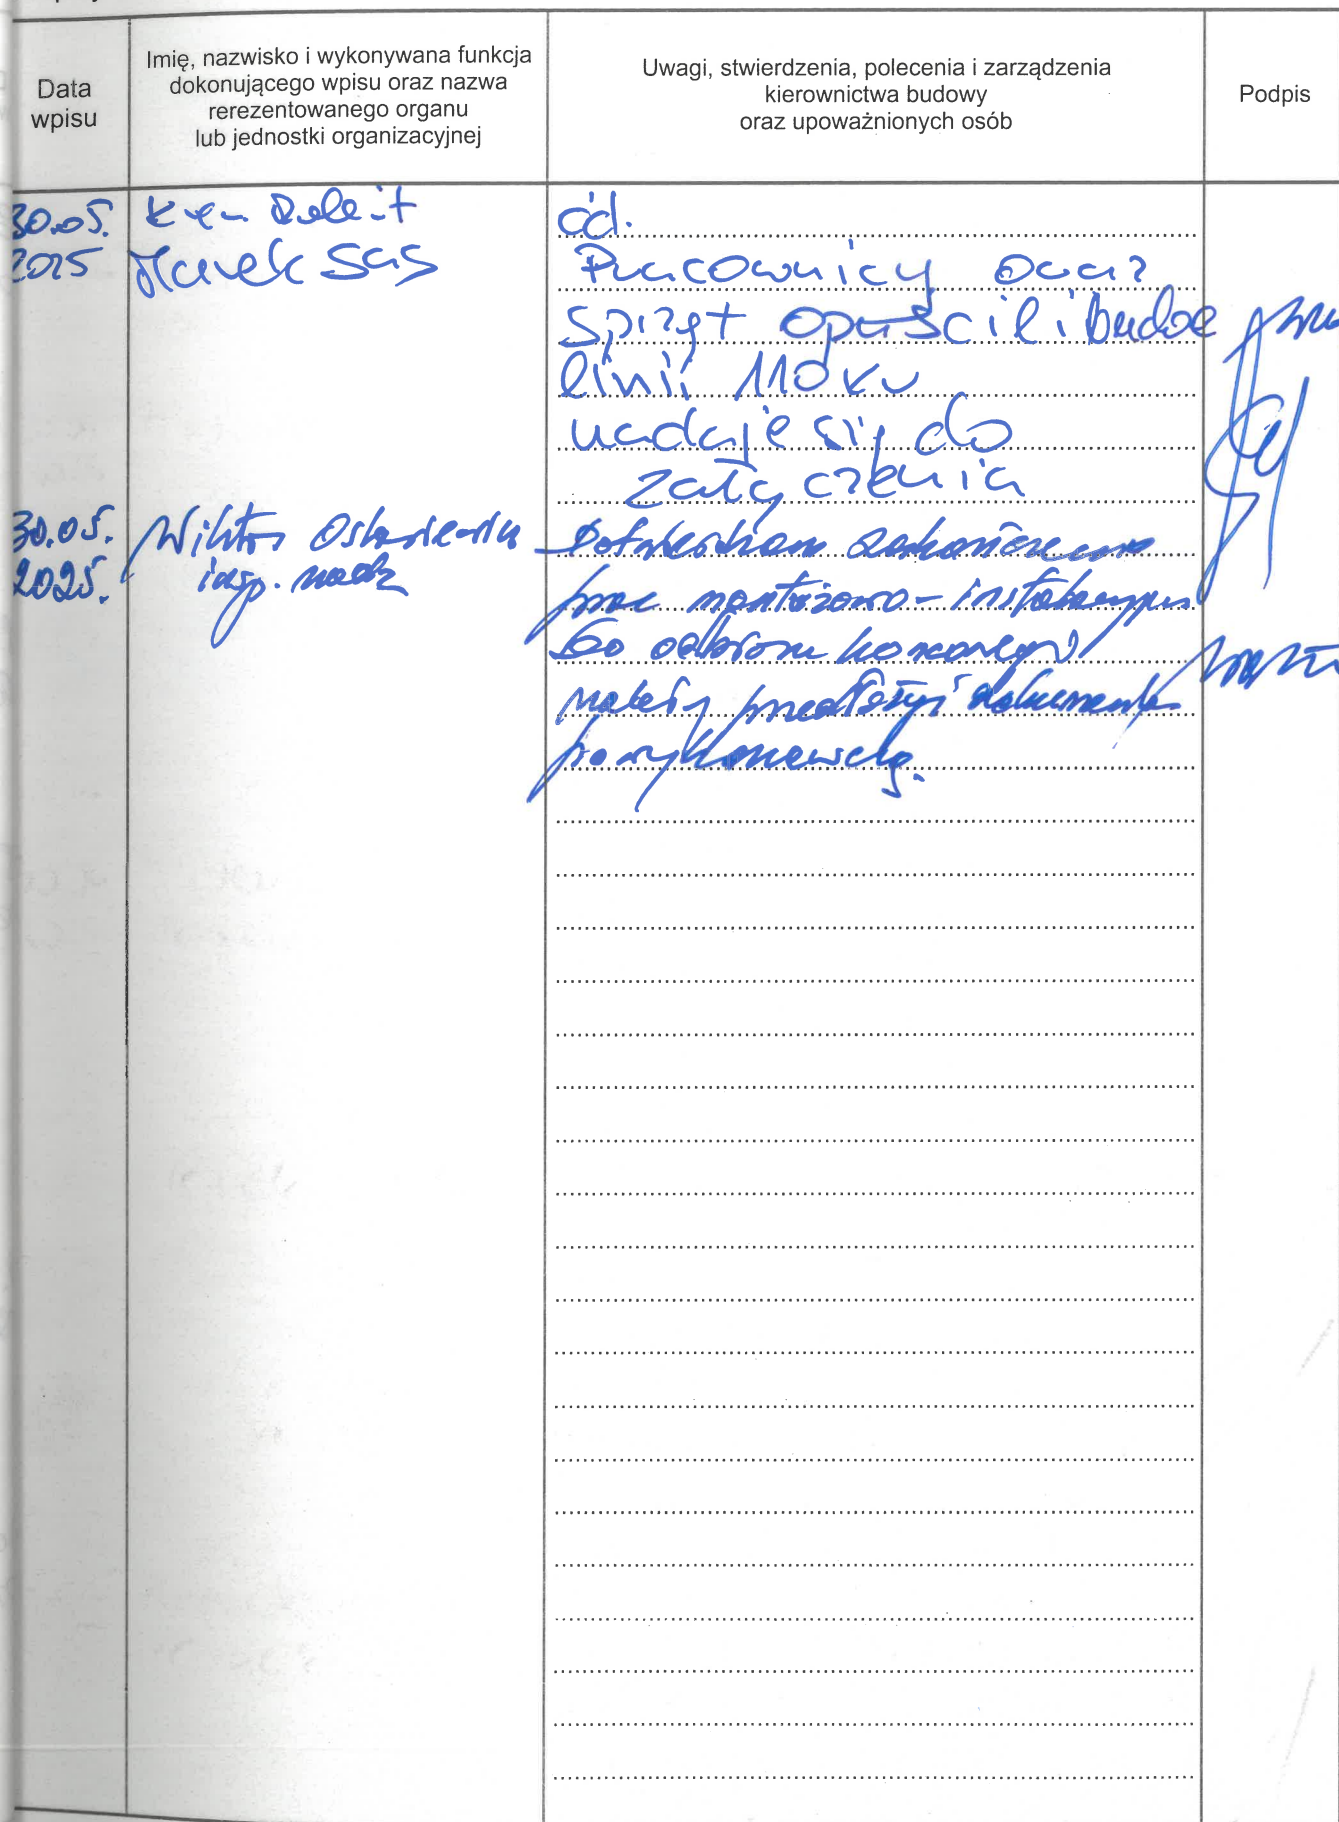 Data
wpisu
Imię, nazwisko i wykonywana funkcja
dokonującego wpisu oraz nazwa
rerezentowanego organu
lub jednostki organizacyjnej
Uwagi, stwierdzenia, polecenia i zarządzenia
kierownictwa budowy
oraz upoważnionych osób
Podpis
30.05.
2025
Marek Sas
cd.
Pracownicy oraz
sprzęt opuścili budowę
linii 110 kV
nadaje się do
załączenia
30.05.
2025.
Wiktor
insp. nadz
Potwierdzam zakończenie
prac montażowo-instalacyjnych
Do odbioru końcowego
należy przedłożyć dokumentację
powykonawczą.